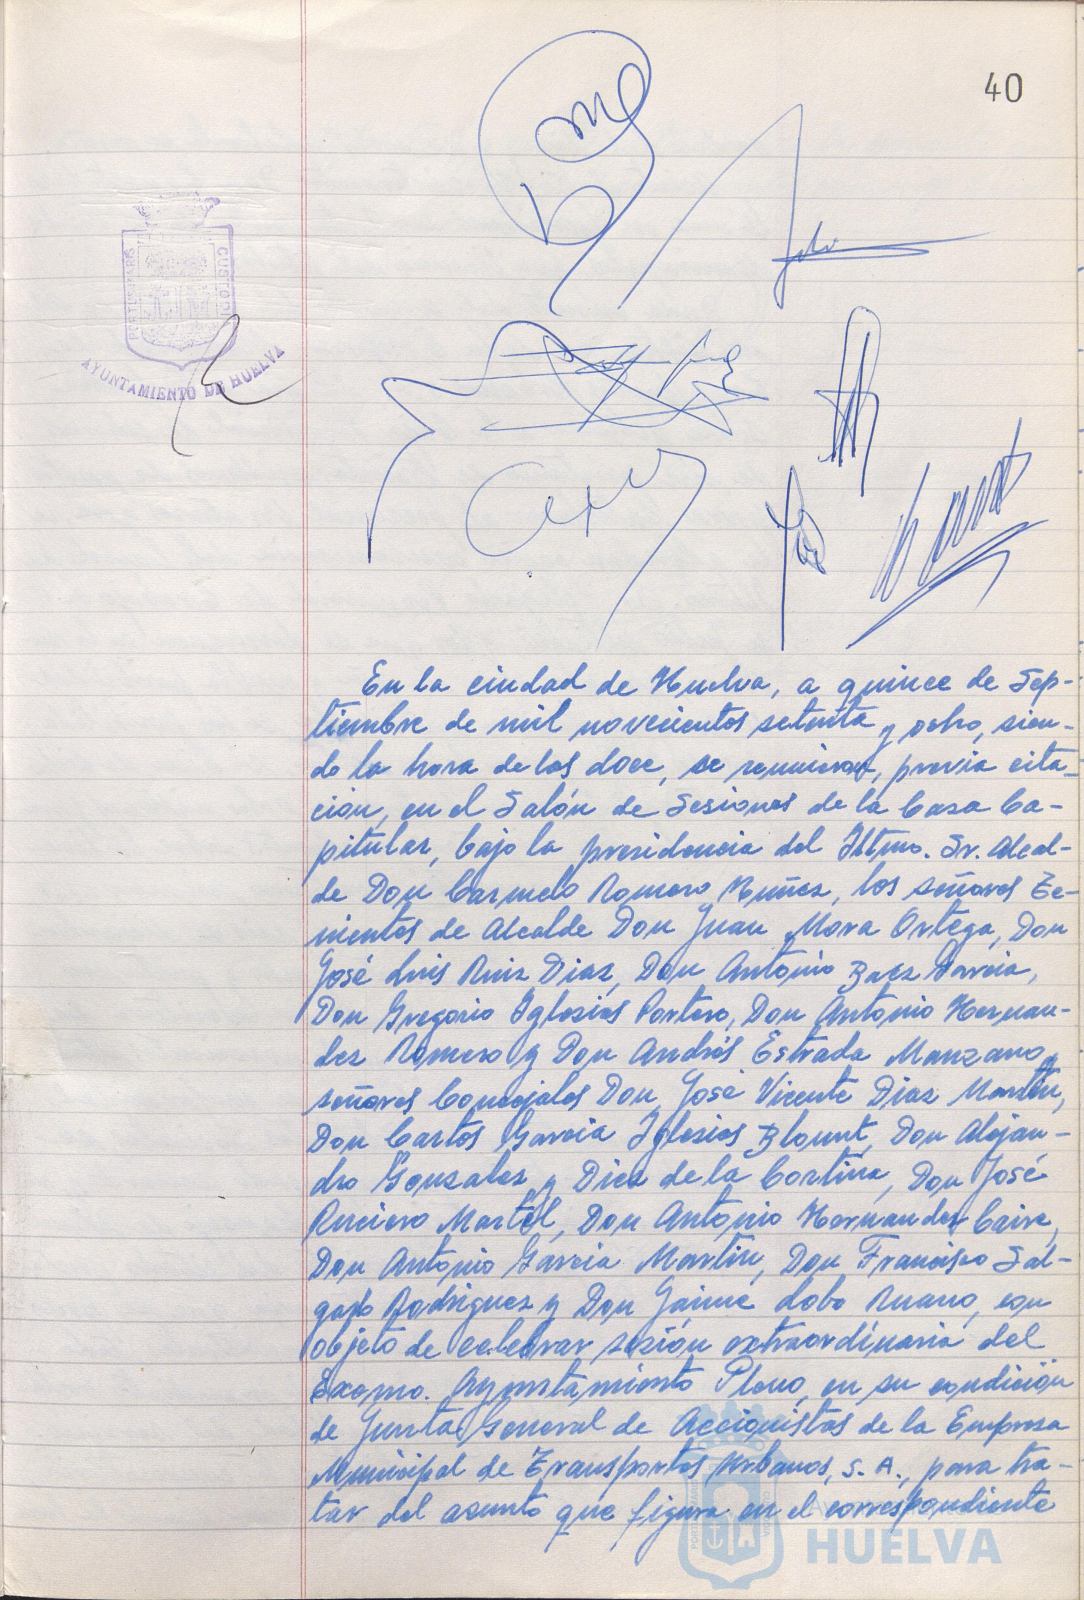 40
PORTUS MARIS
CUSTODI
AYUNTAMIENTO DE HUELVA
En la ciudad de Huelva, a quince de Sep-
tiembre de mil novecientos setenta y ocho, sien-
do la hora de las doce, se reunieron, previa cita-
ción, en el Salón de Sesiones de la Casa Ca-
pitular, bajo la presidencia del Iltmo. Sr. Alcal-
de Don Carmelo Romero Muñoz, los señores Te-
nientes de Alcalde Don Juan Mora Ortega, Don
José Luis Ruiz Diaz, Don Antonio Baez Garcia,
Don Gregorio Iglesias Portero, Don Antonio Hernan-
dez Romero y Don Andrés Estrada Manzano y
señores Concejales Don José Vicente Diaz Martín,
Don Carlos Garcia Iglesias Blount, Don Alejan-
dro Gonzalez y Diez de la Cortina, Don José
Ruciero Martél, Don Antonio Hernandez Caire,
Don Antonio Garcia Martín, Don Francisco Sal-
gado Rodriguez y Don Jaime Lobo Ruano, con
objeto de celebrar sesión extraordinaria del
Excmo. Ayuntamiento Pleno, en su condición
de Junta General de Accionistas de la Empresa
Municipal de Transportes Urbanos, S. A., para tra-
tar del asunto que figura en el correspondiente
HUELVA